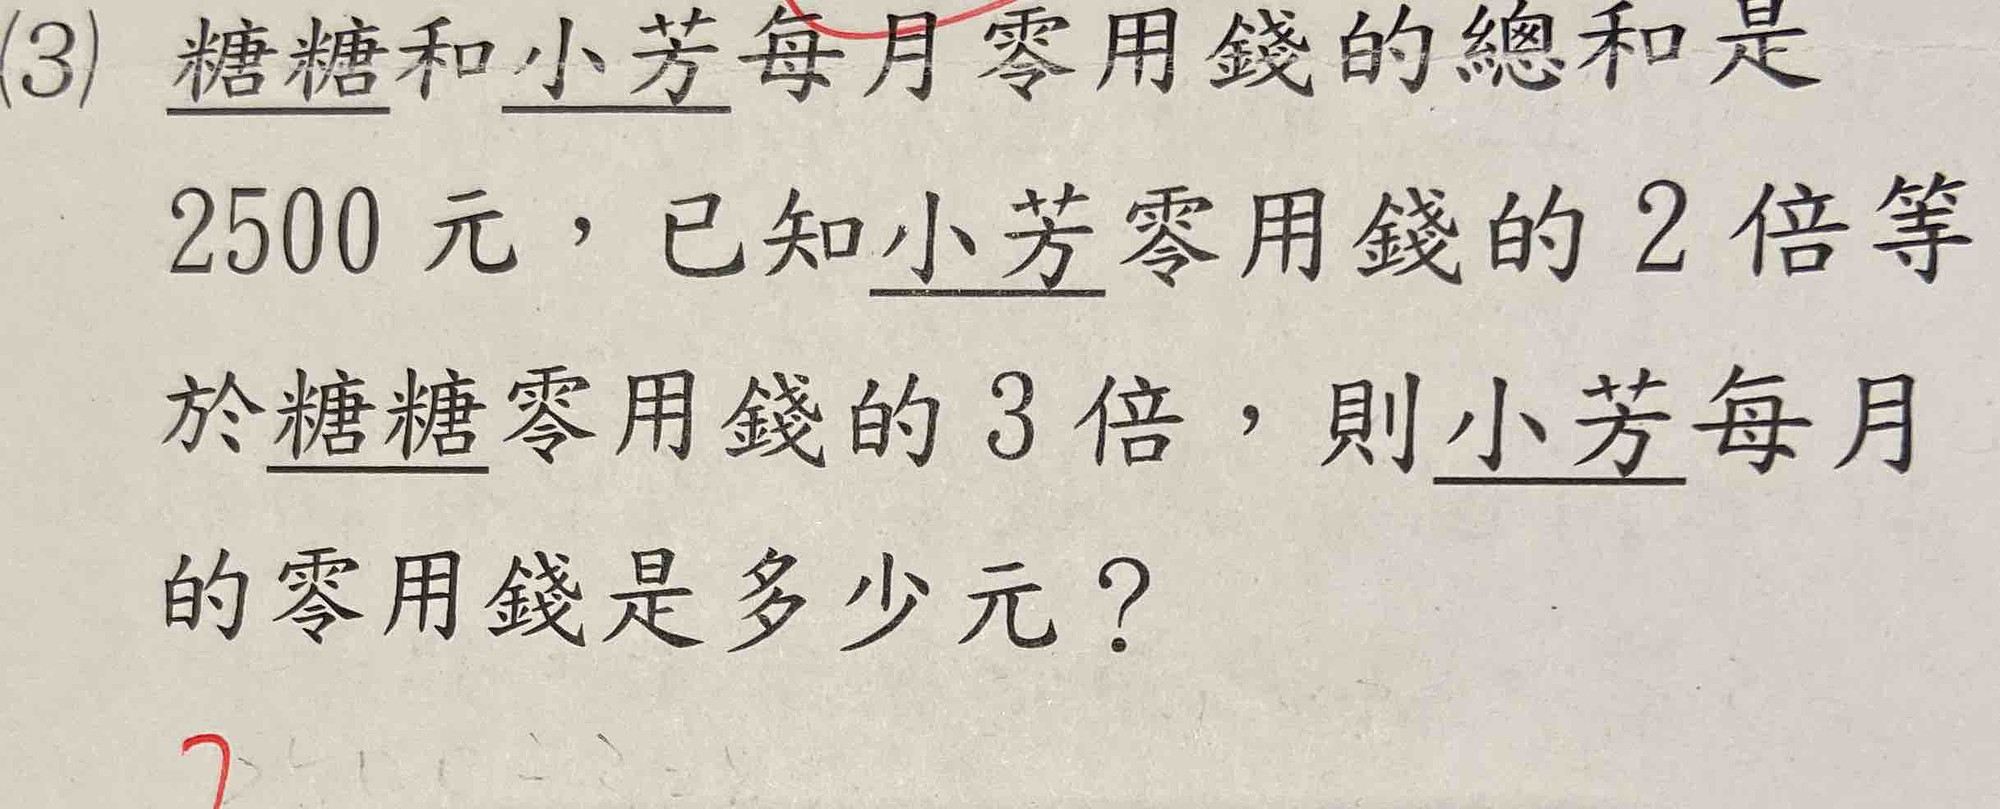 (3) 糖糖和小芳每月零用錢的總和是
2500 元，已知小芳零用錢的 2 倍等
於糖糖零用錢的 3 倍，則小芳每月
的零用錢是多少元？